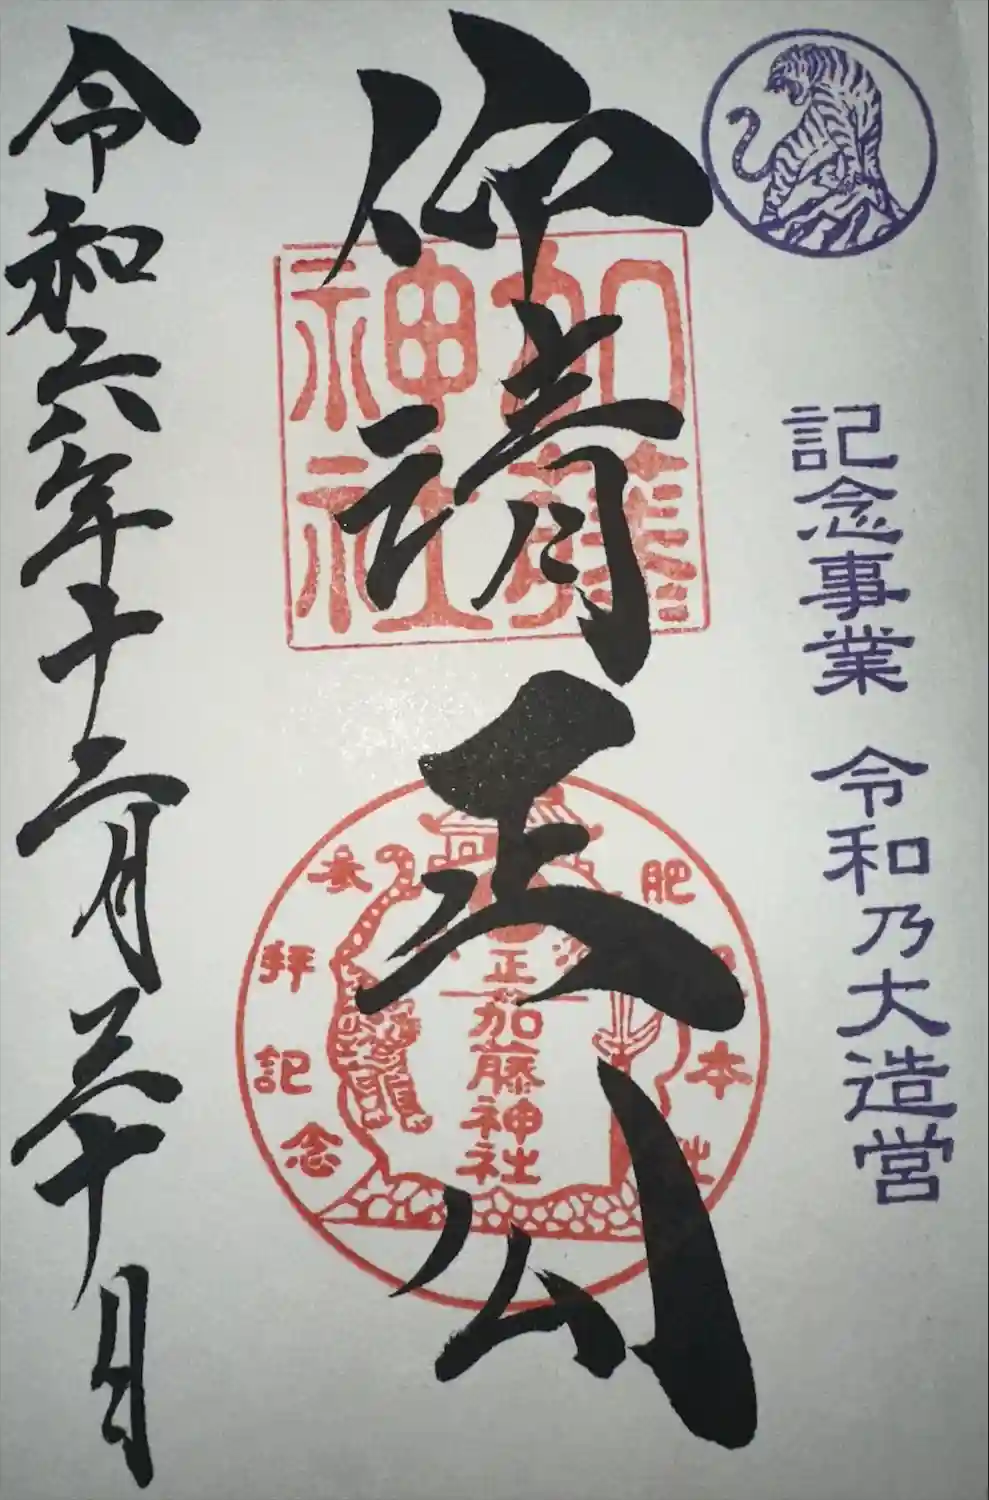 記念事業 令和乃大造営
仰清正公
加藤神社
肥 本社
参拝記念
加藤神社
令和六年十二月三十日